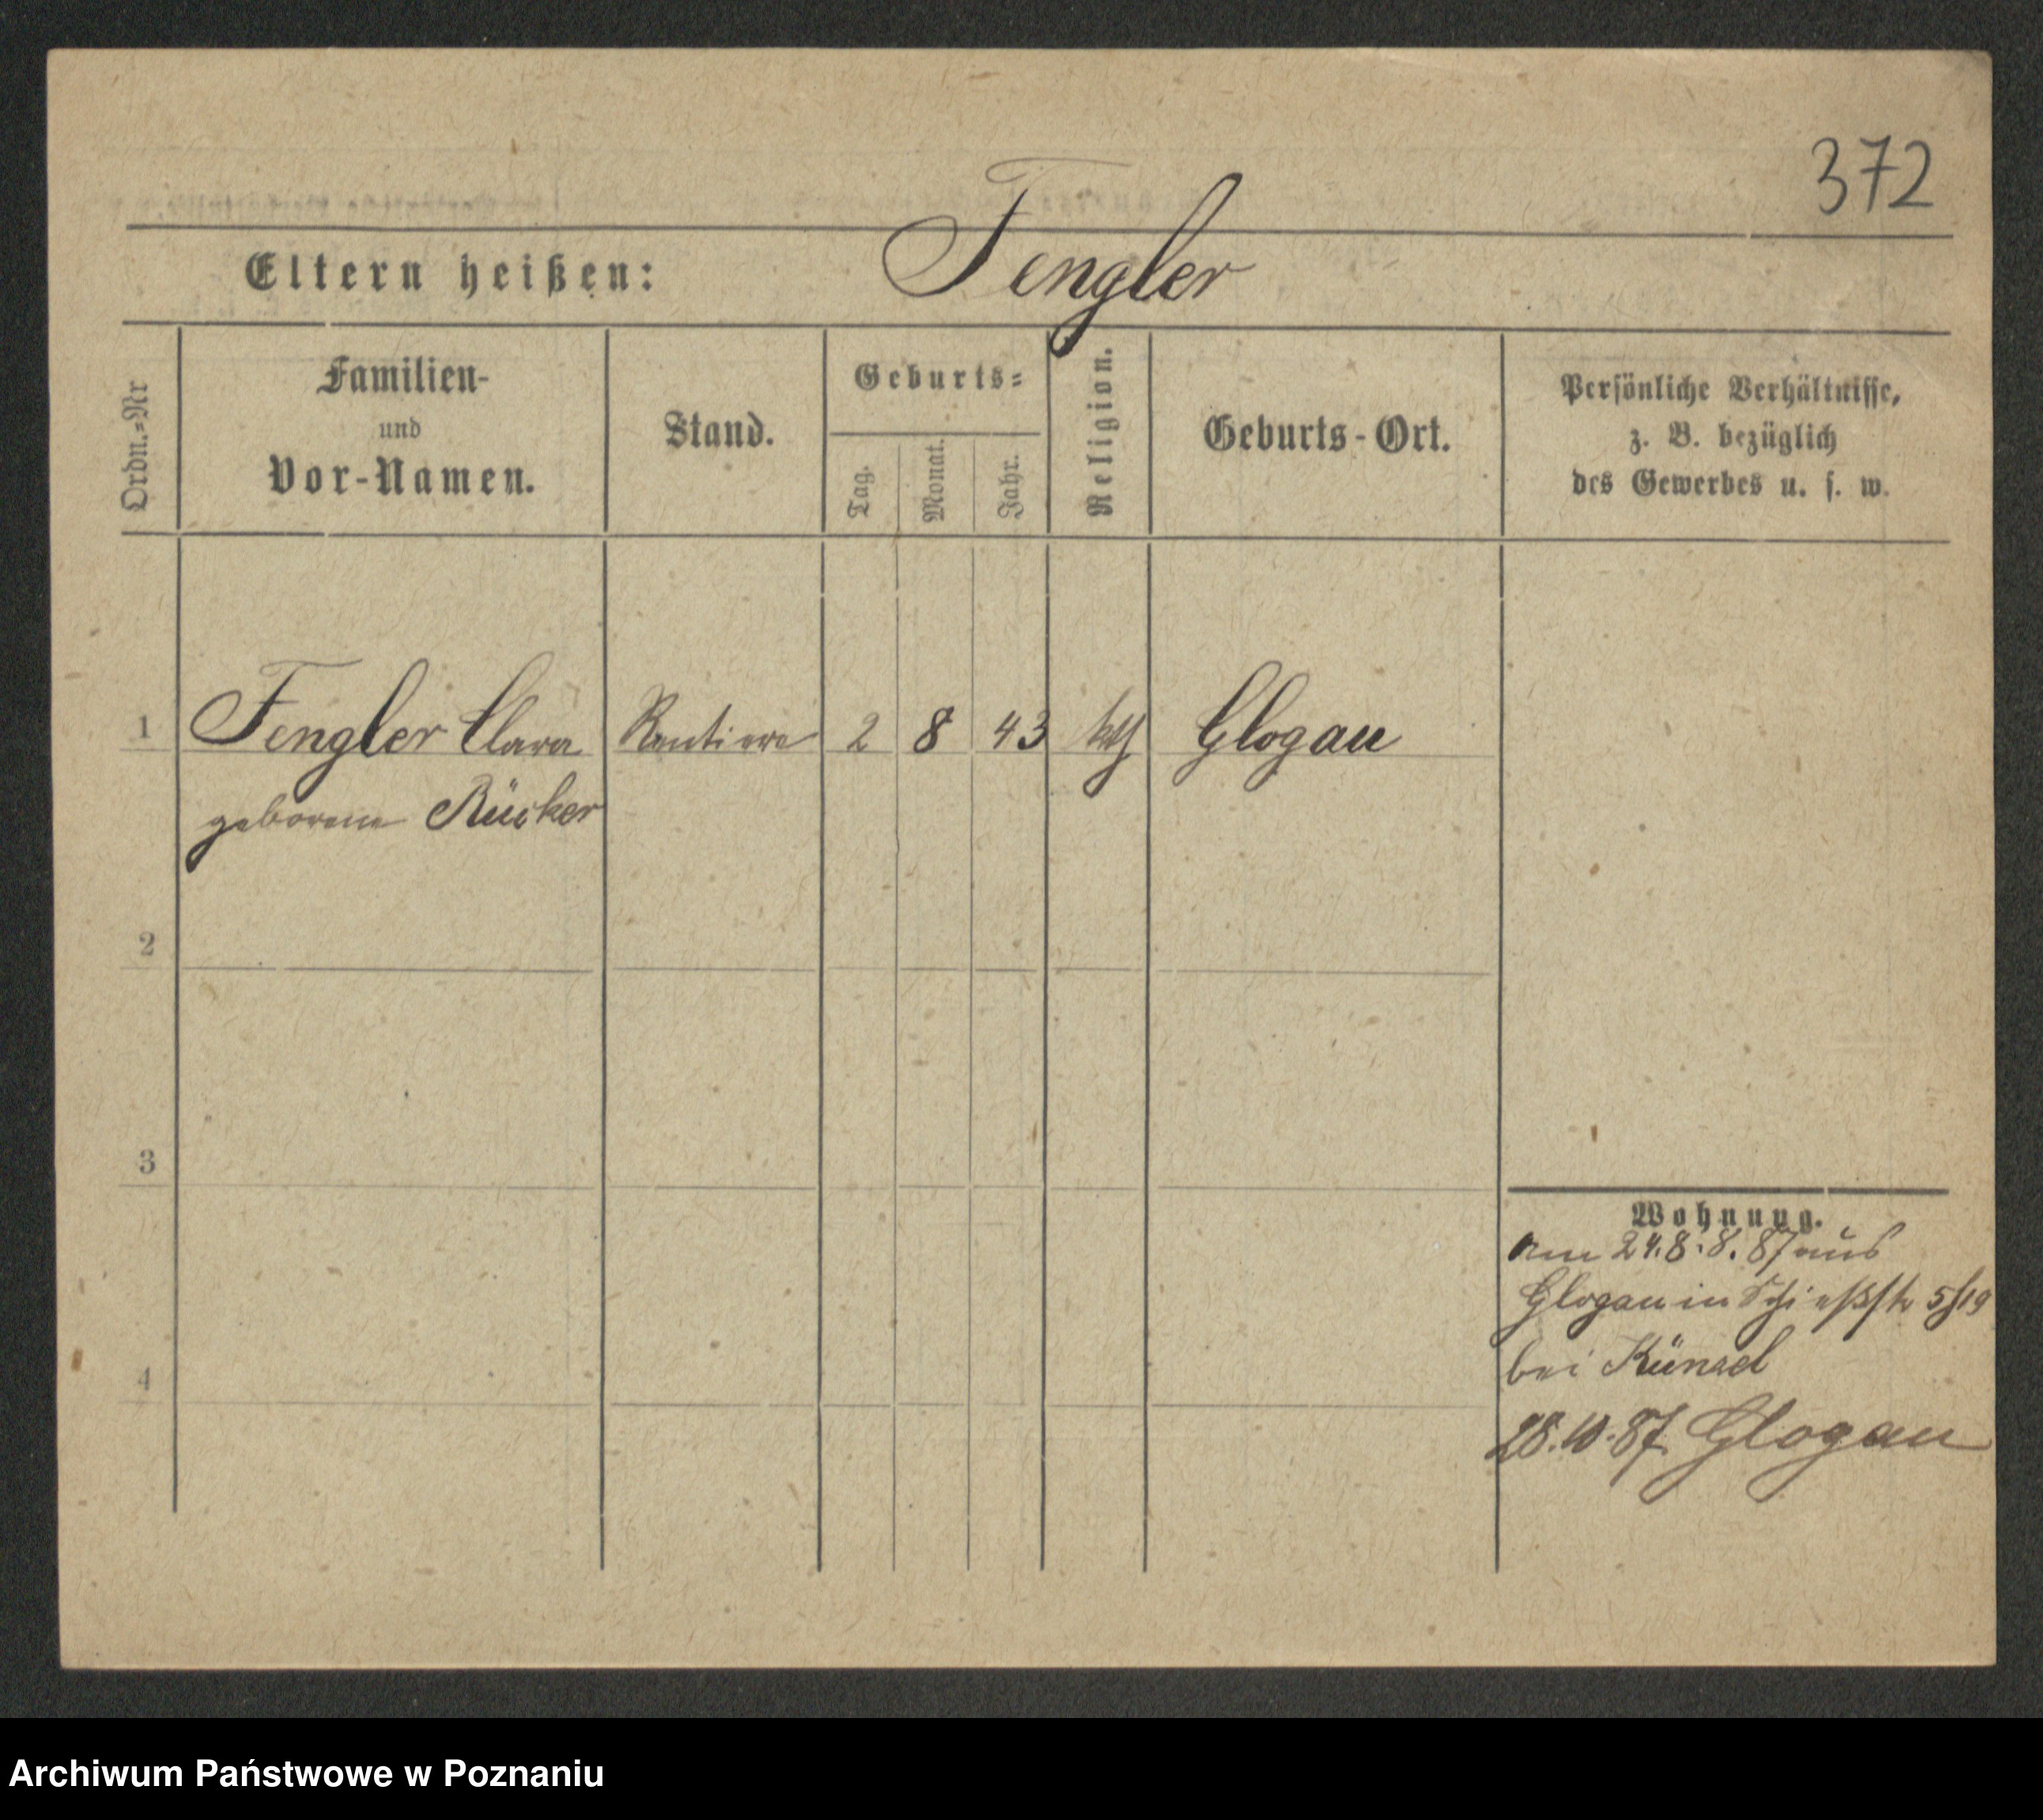 372
Eltern heißen: Fengler
Ordn.=Nr
Familien-
und
Vor-Namen.
Stand.
Geburts=
Tag.
Monat.
Jahr.
Religion.
Geburts-Ort.
Persönliche Verhältnisse,
z. B. bezüglich
des Gewerbes u. s. w.
1 Fengler Clara Rentiere 2 8 43 kth Glogau
geborene Rücker
2
3
4
Wohnung.
am 24.8. 8. 87 aus
Glogau in Schießstr 5/19
bei Künzel
28.10.87 Glogau
Archiwum Państwowe w Poznaniu